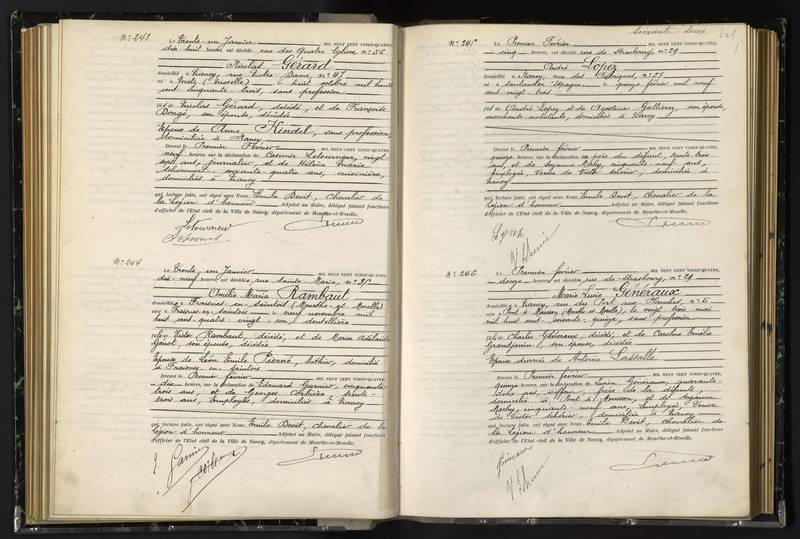 N° 243
Le Trente-un Janvier MIL NEUF CENT VINGT-QUATRE,
dix huit heures, est décédé rue des Quatre Eglises n° 56
Nicolas Gérard
domicilié à Nancy, rue Notre-Dame, n° 47
né à Metz (Moselle) le huit octobre mil huit
cent cinquante trois, sans profession
fils de Nicolas Gérard, décédé, et de Françoise
Dongé, son épouse, décédée
Epoux de Anne Kindel, sans profession
domiciliée à Nancy
Dressé le Premier Février MIL NEUF CENT VINGT-QUATRE,
neuf heures, sur la déclaration de Casimir Letourneur, vingt
sept ans, journalier, et de Hélène Marie
soixante-quatre ans, cuisinière,
domiciliés à Nancy
qui, lecture faite, ont signé avec Nous Emile Devit, Chevalier de
la Légion d'honneur Adjoint au Maire, délégué faisant fonctions
d'officier de l'Etat civil de la Ville de Nancy, département de Meurthe-et-Moselle.
Letourneur
N° 244
Le Trente un Janvier MIL NEUF CENT VINGT-QUATRE,
dix-neuf heures, est décédée rue Sainte Marie, n° 35
Amélie Marie Rambaut
domiciliée à Fraisnes en Saintois (Meurthe-et-Moselle)
née à Fraisnes en Saintois le neuf novembre mil
huit cent quatre-vingt un, dentellière
fille de Victor Rambaut, décédé, et de Marie Adelaïde
son épouse, décédée
Epouse de Léon Emile Pierné, luthier, domicilié
à Fraisnes en Saintois
Dressé le Premier février MIL NEUF CENT VINGT-QUATRE,
dix heures, sur la déclaration de Edouard Garnier, cinquante
trois ans, et de Georges trente-
trois ans, employés, domiciliés à Nancy
qui, lecture faite, ont signé avec Nous Emile Devit, chevalier de la
Légion d'honneur Adjoint au Maire, délégué faisant fonctions
d'officier de l'Etat civil de la Ville de Nancy, département de Meurthe-et-Moselle.
E. Garnier
Soixante-deux
N° 245
Le Premier Février MIL NEUF CENT VINGT-QUATRE,
cinq heures, est décédé rue de Strasbourg, n° 29
André Lopez
domicilié à Nancy, rue des n° 27
né à Santander Espagne le quinze février mil neuf
cent vingt trois
fils de André Lopez et de Agostina Guttierez, son épouse,
marchands ambulants, domiciliés à Nancy
Dressé le Premier février MIL NEUF CENT VINGT-QUATRE,
quinze heures, sur la déclaration du père du défunt, trente trois
ans, et de Suzanne Marly, cinquante-neuf ans,
employée, Veuve de Victor domiciliés à
Nancy
qui, lecture faite, ont signé avec Nous Emile Devit, chevalier de la
Légion d'honneur Adjoint au Maire, délégué faisant fonctions
d'officier de l'Etat civil de la Ville de Nancy, département de Meurthe-et-Moselle.
N° 246
Le Premier février MIL NEUF CENT VINGT-QUATRE,
douze heures, est décédée rue de Strasbourg, n° 29
Marie Luise Généraux
domiciliée à Nancy, rue du Port aux Planches n° 6
née à Pont à Mousson (Meurthe et Moselle), le vingt trois mai
mil huit cent soixante quinze, sans profession
fille de Charles Généraux, décédé, et de Caroline Emélie
Grandjamin, son épouse, décédée
Epouse divorcée de Antoine Lassalle
Dressé le Premier février MIL NEUF CENT VINGT-QUATRE,
quinze heures, sur la déclaration de Lucien Généraux, quarante-
frère de la défunte
domicilié à Pont à Mousson, et de Suzanne
Marly, cinquante-neuf ans, employée, Veuve
de Victor domiciliée à Nancy
qui, lecture faite, ont signé avec Nous Emile Devit, Chevalier de
la Légion d'honneur Adjoint au Maire, délégué faisant fonctions
d'officier de l'Etat civil de la Ville de Nancy, département de Meurthe-et-Moselle.